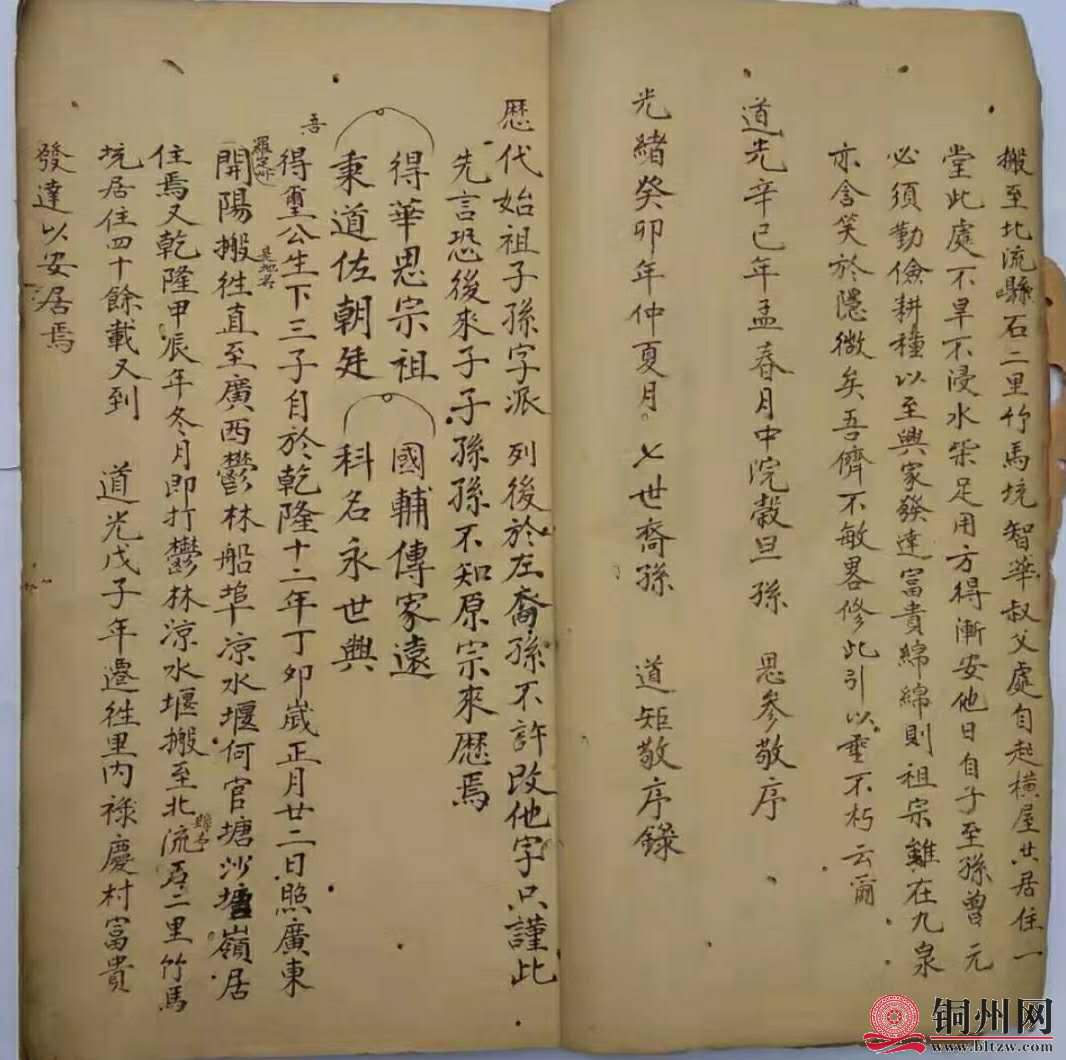 搬至北流縣石二里竹馬坑智華叔父處自起横屋共居住一
堂此處不旱不浸水柴足用方得漸安他日自子至孫曾元
必須勤儉耕種以至興家發達富貴綿綿則祖宗雖在九泉
亦含笑於隱微矣吾儕不敏畧修此引以垂不朽云爾
道光辛巳年孟春月中浣穀旦孫 思參敬序
光緒癸卯年仲夏月。七世裔孫 道矩敬序錄
歷代始祖子孫字派 列後於左裔孫不許改他字只謹此
先言恐後來子子孫孫不知原宗來歷焉
得華思宗祖 國輔傳家遠
秉道佐朝廷 科名永世興
吾
得璽公生下三子自於乾隆十二年丁卯歲正月廿二日照廣東
羅定州
是地名
開陽搬徃直至廣西鬱林船埠凉水堰何官塘沙塘嶺居
住焉又乾隆甲辰年冬月即打鬱林凉水堰搬至北流石二里竹馬
坑居住四十餘載又到 道光戊子年遷徃里内祿慶村富貴
發達以安居焉
铜州网
www.bltzw.com